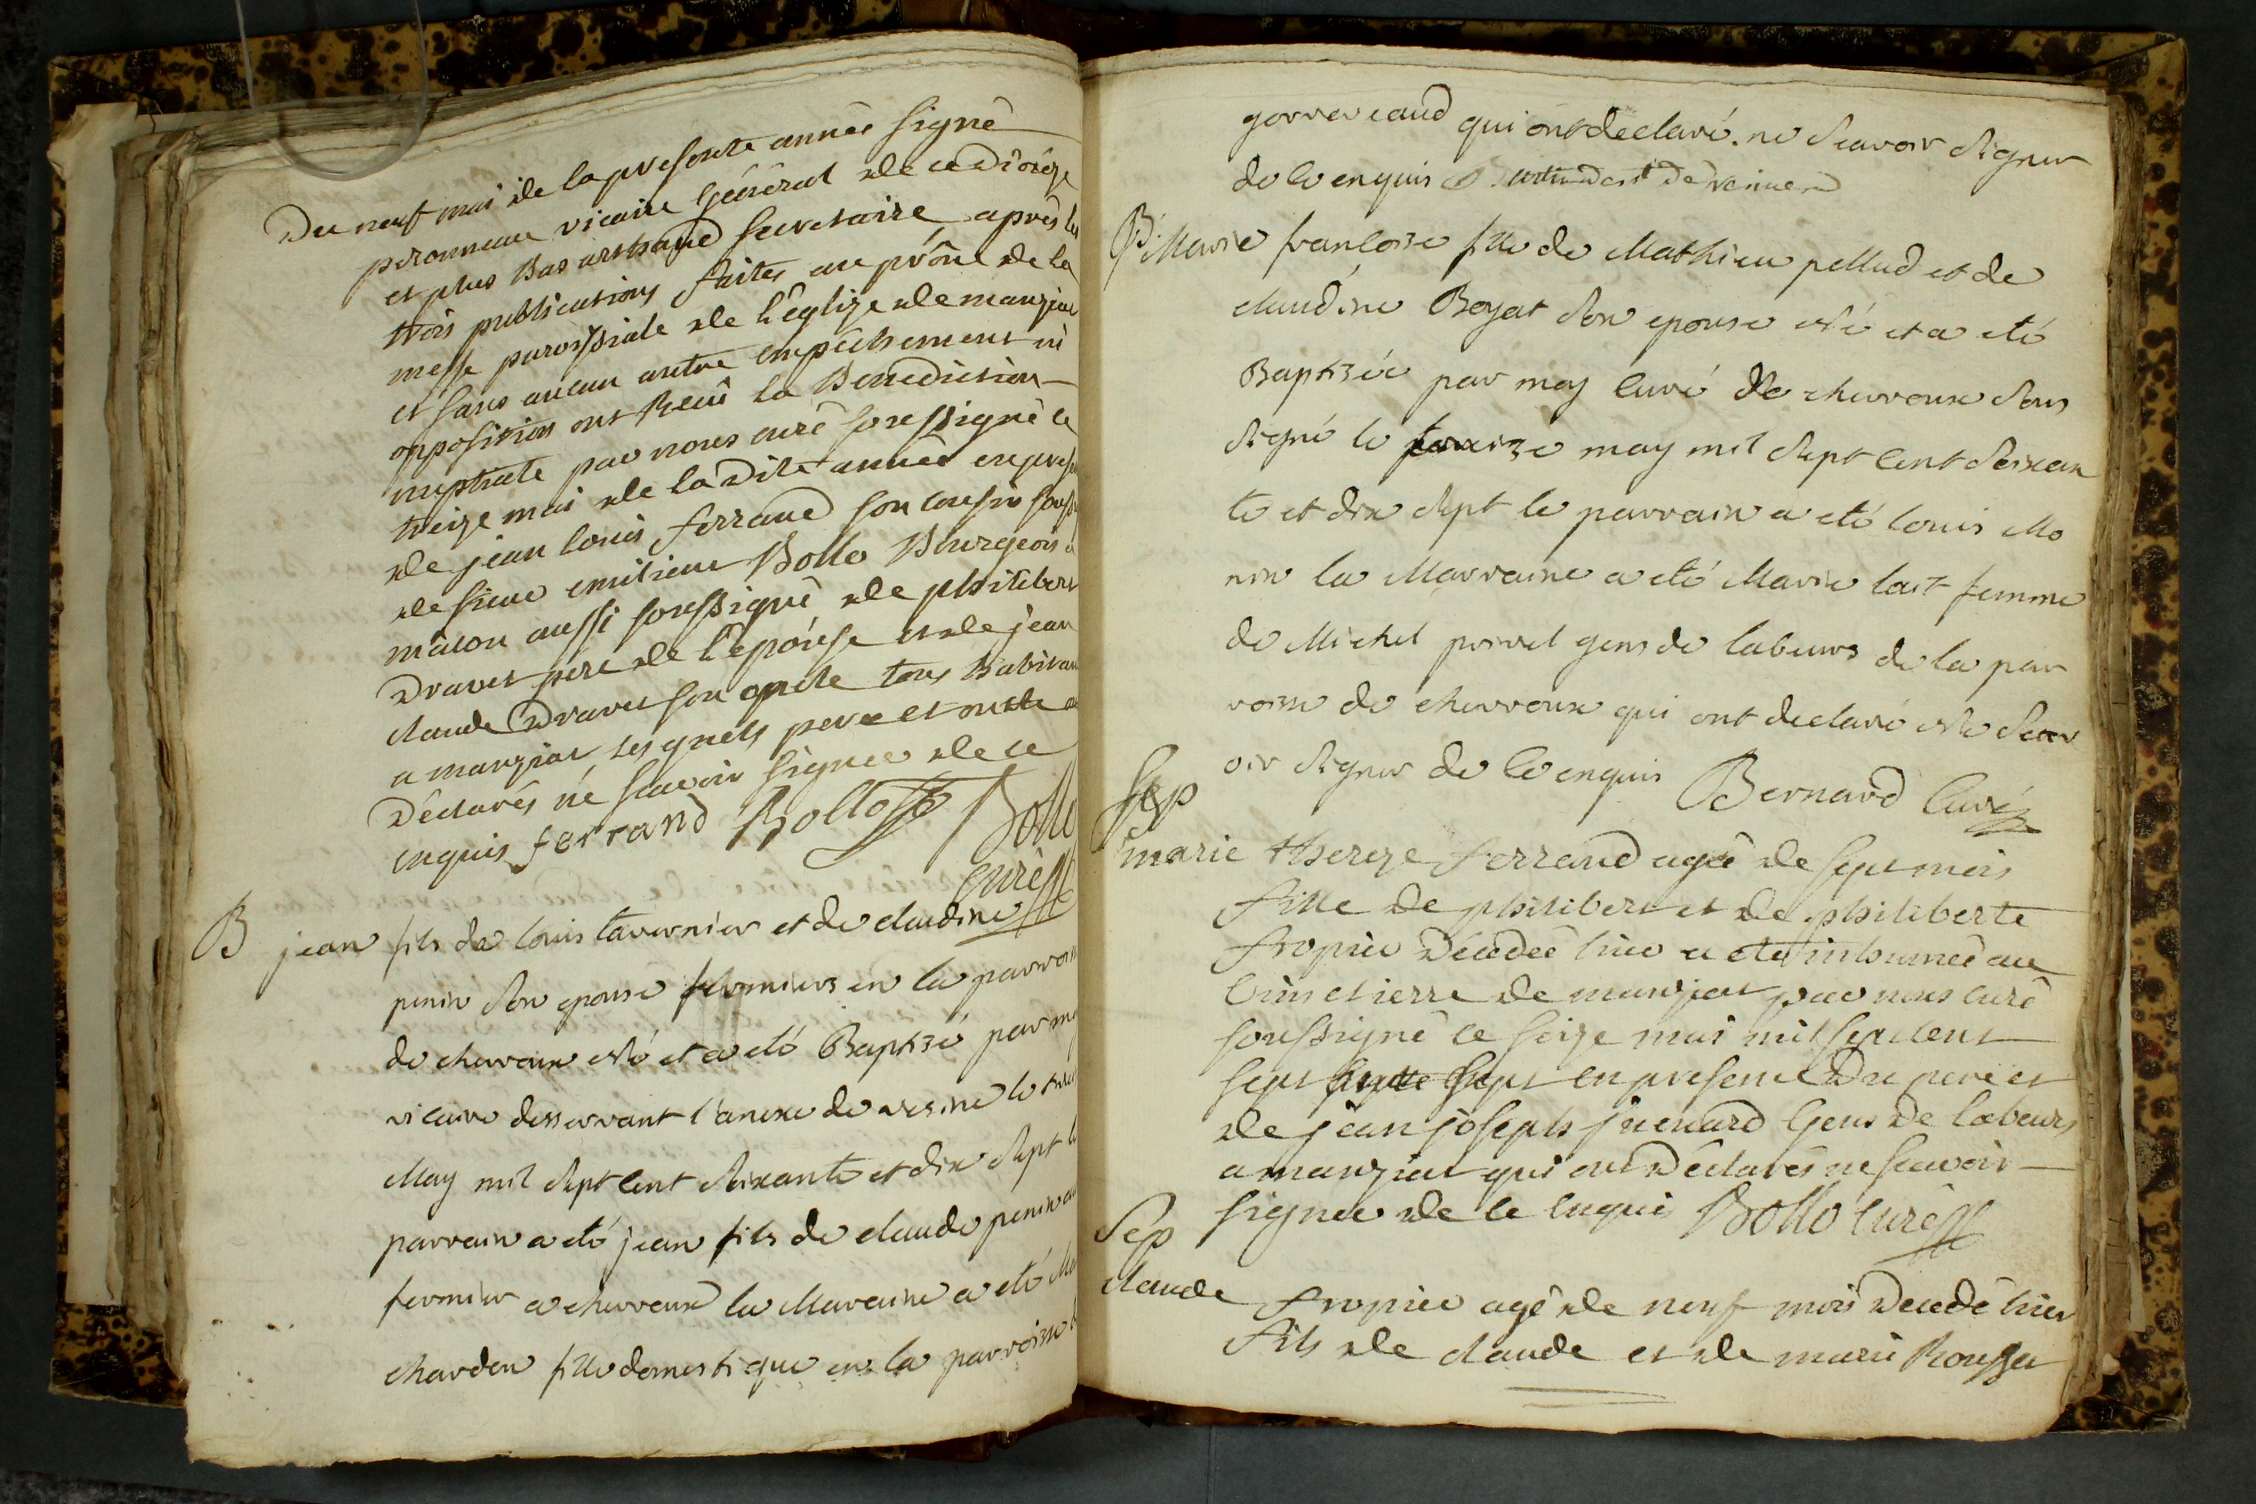 Du neuf mai de la presente année signé
peronneau vicaire général de ce dioèze
et plus bas arthaud secretaire, apres les
trois publications faites au prône de la
messe paroissiale de l'églize de manziat
et sans aucun autre empêchement ni
opposition ont Recû la Benediction
nuptiale par nous curé soussigné le
treize mai de la dite année en presen
de jean louis ferrand son cousin souss
de sieur emiliene Bollo Bourgeois a
mâcon aussi soussigné de philibert
Dravet pere de l'épouse et de jean
claude Dravet son oncle tous habitan
a manziat, lesquels pere et oncle
déclarés né scavoir signer de ce
enquis ferrand Bollo Bollo
curé
B jean fils de louis tavernier et de claudine
penin son epouse fermiers en la parrois
de chevroux né et a eté Baptisé par mo
vicaire desservant l'anexe de vesine le
May mil sept cent soixante et dix sept le
parrain a eté jean fils de claude penin
fermier a chevroux la Maraine a eté
chardon fille domestique en la parroisse
gorrevaud qui ont declaré ne scavoir signer
de ce enquis
B Marie francoise fille de Mathieu pellud et de
claudine Boyat son epouse née et a eté
Baptisée par moy curé de chevroux sous
signé le may mil sept cent soixan
te et dix sept le parrain a eté louis Mo
nin la Marraine a eté Marie lait femme
de Michel poivel gens de labeurs de la par
roisse de chevroux qui ont declaré ne scav
oir signer de ce enquis Bernard Curé
Sep
marie thereze ferrand agée de sept mois
fille de philibert et de philiberte
fropier décédée hier a eté inhumée au
cimetierre de manziat par nous curé
soussigné le seize mai mil sept cent
sept sept en presence Du pere et
de jean joseph juenard Gens de labeurs
a manziat qui ont Déclarés ne scavoir
signer de ce enquis Bollo curé
Sep
claude fropier agé de neuf mois décédé hier
fils de claude et de marie Rousset